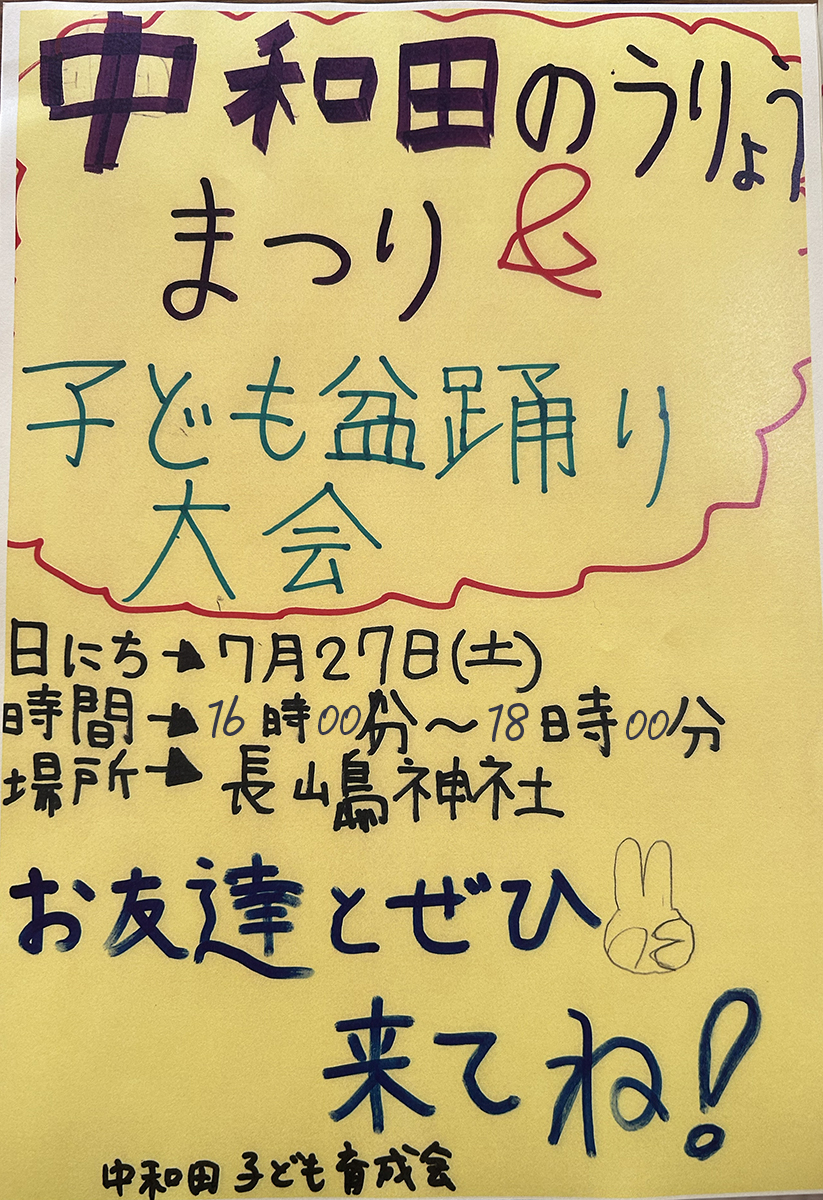 中和田のうりょう
まつり&
子ども盆踊り
大会
日にち→7月27日(土)
時間→16時00分～18時00分
場所→長嶋神社
お友達とぜひ
来てね!
中和田子ども育成会